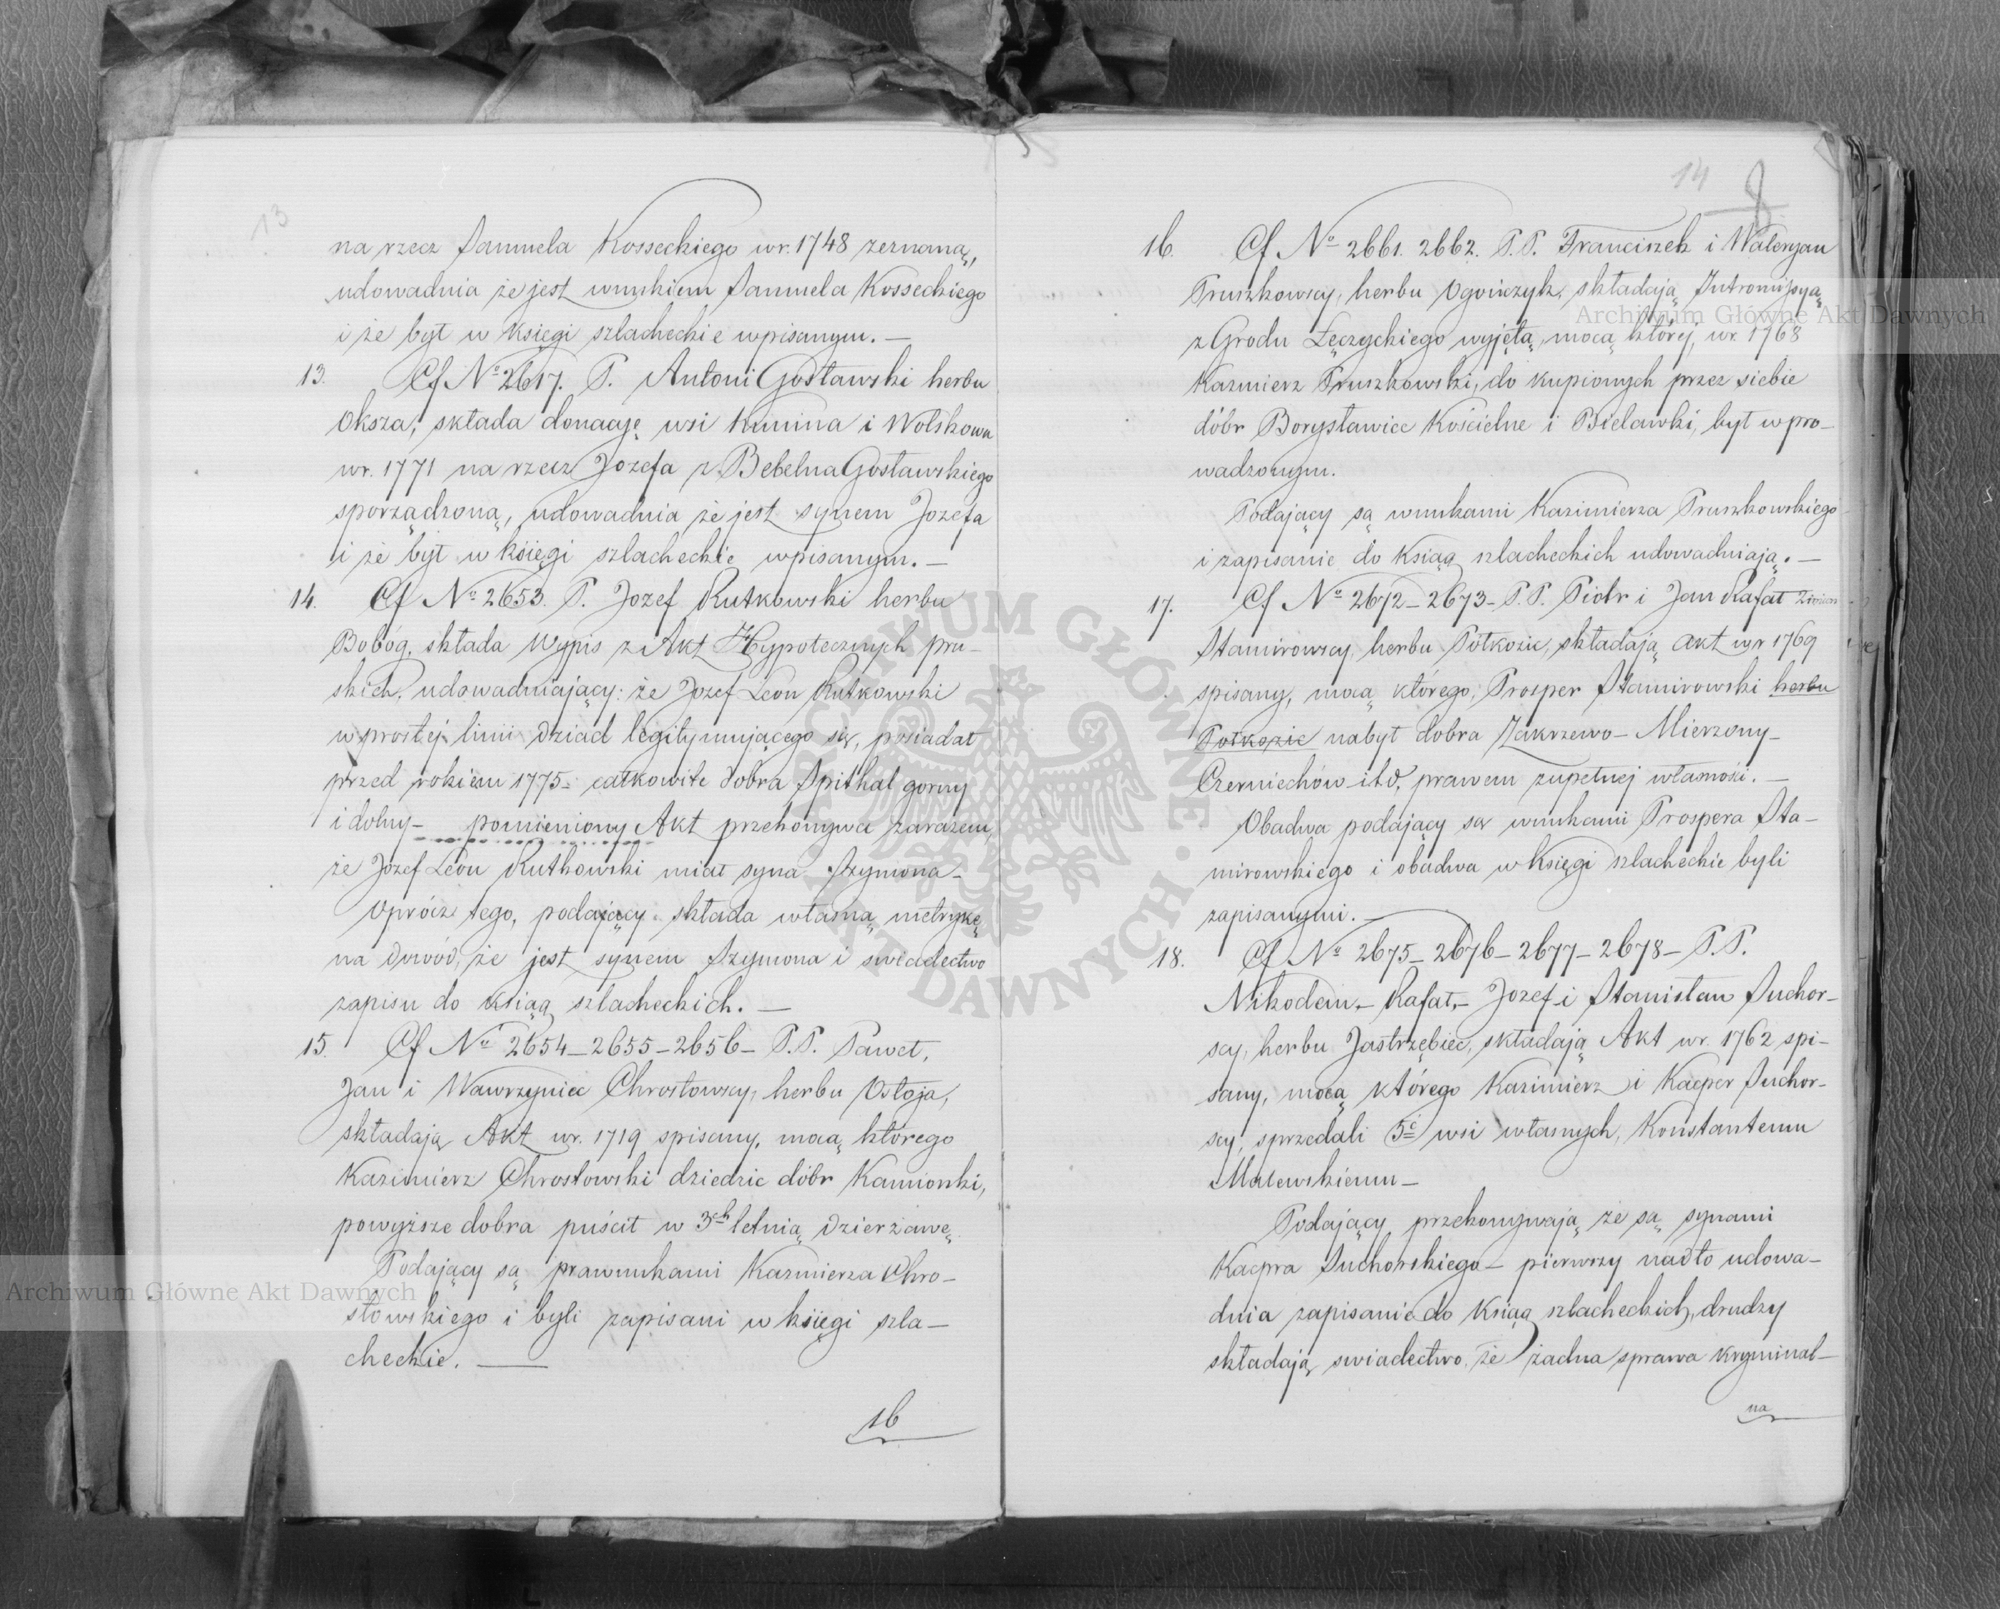 13
na rzecz Samuela Kosseckiego w r. 1748 zeznaną,
udowadnia że jest wnukiem Samuela Kosseckiego
i że był w księgi szlacheckie wpisanym. —
13. Cf No 2617. P. Antoni Gosławski herbu
Oksza, składa donacyę wsi Kunina i Wolskowa
w r. 1771 na rzecz Jozefa z Bebelna Gosławskiego
sporządzoną, udowadnia że jest synem Jozefa
i że był w księgi szlacheckie wpisanym. —
14. Cf No 2653. P. Jozef Rutkowski herbu
Bobóg, składa Wypis z Akt Hypotecznych pru-
skich, udowadniający: że Jozef Leon Rutkowski
w prostej linii dziad legitymującego się, posiadał
przed rokiem 1775 całkowite dobra Spithal gorny
i dolny — pomieniony Akt przekonywa zarazem,
że Jozef Leon Rutkowski miał syna Szymona —
Oprócz tego, podający składa własną metrykę
na dowód, że jest synem Szymona i swiadectwo
zapisu do ksiąg szlacheckich. —
15. Cf No 2654 — 2655 — 2656 — P.P. Paweł,
Jan i Wawrzyniec Chrostowscy, herbu Ostoja,
składają Akt w r. 1719 spisany, mocą którego
Kazimierz Chrostowski dziedzic dóbr Kamionki,
powyższe dobra puścił w 3ch letnią dzierżawę
Podający są prawnukami Kazimierza Chro-
stowskiego i byli zapisani w księgi szla-
checkie. —
16
14
8
16. Cf No 2661. 2662. P.P. Franciszek i Waleryan
Pruszkowscy, herbu Ogończyk, składają Intromissyą
z Grodu Łęczyckiego wyjętą, mocą której, w r. 1768
Kazmierz Pruszkowski, do kupionych przez siebie
dóbr Borysławice Kościelne i Bielawki, był wpro-
wadzonym.
Podający są wnukami Kazimierza Pruszkowskiego
i zapisanie do ksiąg szlacheckich udowadniają. —
17. Cf No 2672 — 2673 — P.P. Piotr i Jan Rafał
Stamirowscy, herbu Półkozic, składają Akt w r 1769
spisany, mocą którego, Prosper Stamirowski herbu
Półkozic nabył dobra Zakrzewo — Mierzony —
Czerniechów itd, prawem zupełnej własności. —
Obadwa podający są wnukami Prospera Sta-
mirowskiego i obadwa w księgi szlacheckie byli
zapisanymi. —
18. Cf No 2675 — 2676 — 2677 — 2678 — P.P.
Nikodem — Rafał, — Jozef i Stanisław Suchor-
scy, herbu Jastrzębiec, składają Akt w r. 1762 spi-
sany, mocą którego Kazimierz i Kacper Suchor-
scy, sprzedali 5c wsi własnych, Konstantemu
Malewskiemu —
Podający przekonywają że są synami
Kacpra Suchorskiego — pierwszy nadto udowa-
dnia zapisanie do ksiąg szlacheckich, drudzy
składają swiadectwo, że żadna sprawa kryminal-
na
Archiwum Główne Akt Dawnych
Archiwum Główne Akt Dawnych
ARCHIWUM GŁÓWNE AKT DAWNYCH